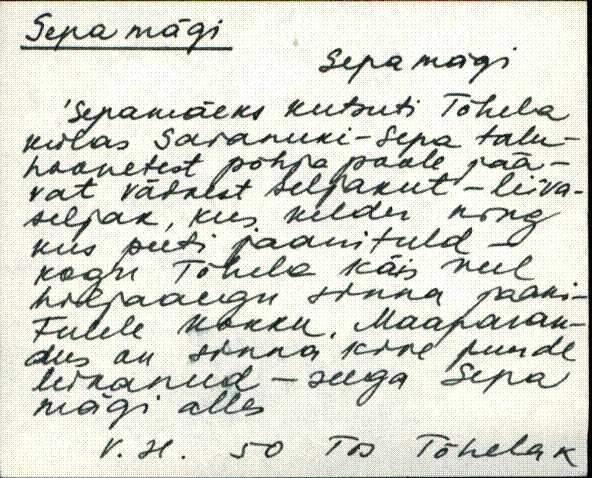 Sepa mägi
Sepa mägi
'Sepamäeks kutsuti Tõhela
külas Saranuki-Sepa talu-
hoonetest põhja poole jää-
vat väikest seljakut - liiva-
seljak, kus kelder ning
kus peeti jaanituld -
kogu Tõhela käis veel
hiljaaegu sinna jaani-
tulele kokku. Maaparan-
dus on sinna
leikanud - seega Sepa
mägi alles
V. H. 50 Tõs Tõhela k